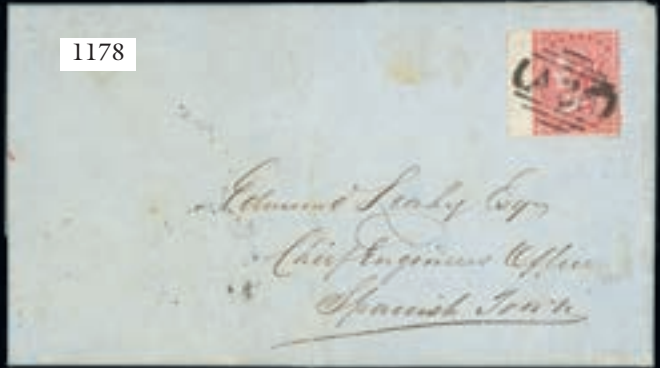 1178
Edmund Leahy Esqr
Chief Engineers Office
Spanish Town